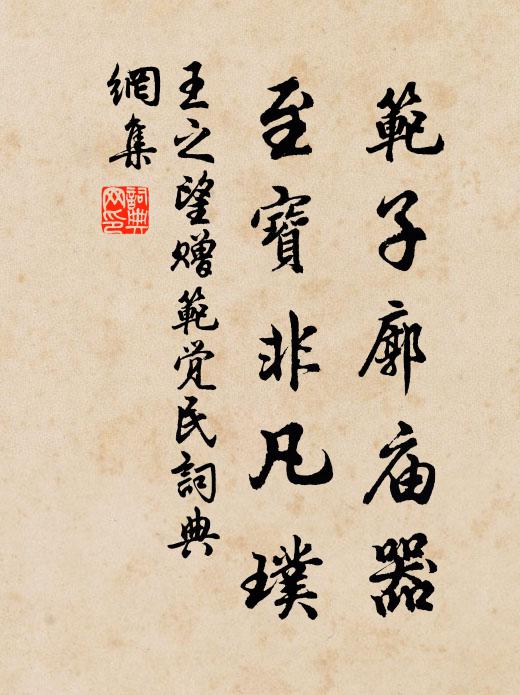 範子廓庙器
至寶非凡璞
王之望贈範觉民詞典
網集
詞典
网印